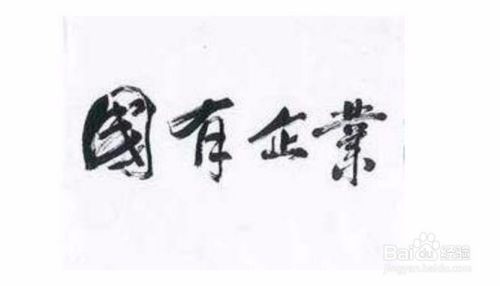 國有企業
Baidu 经验
jingyan.baidu.com